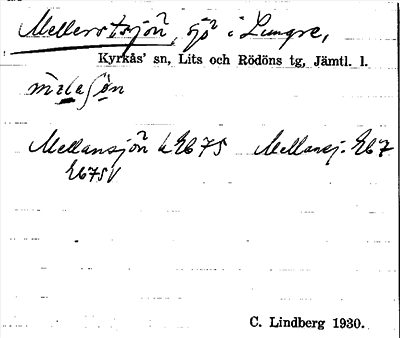 Mellerstsjön, sjö i Lungre,
Kyrkås' sn, Lits och Rödöns tg, Jämtl. l.
Mellansjön k Eb 75 Mellansj. Eb 7
Eb 75 V
C. Lindberg 1930.